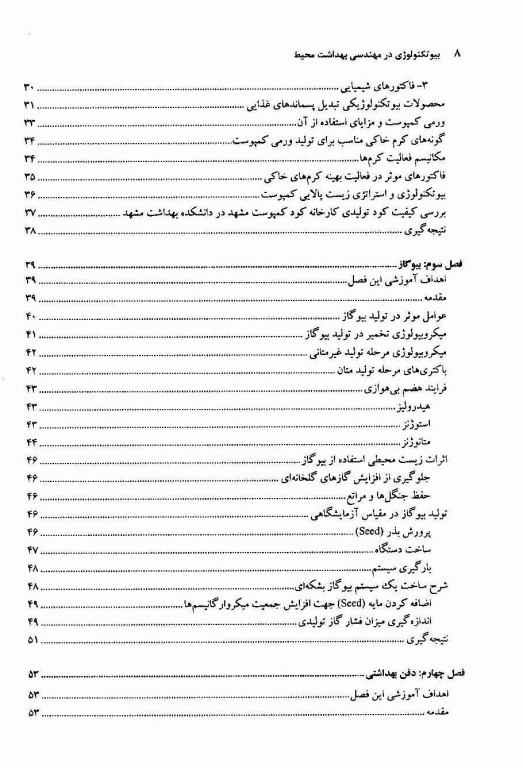 ۸ بیوتکنولوژی در مهندسی بهداشت محیط
۳- فاکتورهای شیمیایی ۳۰
محصولات بیوتکنولوژیکی تبدیل پسماندهای غذایی ۳۱
ورمی کمپوست و مزایای استفاده از آن ۳۳
گونه‌های کرم خاکی مناسب برای تولید ورمی کمپوست ۳۴
مکانیسم فعالیت کرم‌ها ۳۴
فاکتورهای موثر در فعالیت بهینه کرم‌های خاکی ۳۵
بیوتکنولوژی و استراتژی زیست پالایی کمپوست ۳۶
بررسی کیفیت کود تولیدی کارخانه کود کمپوست مشهد در دانشکده بهداشت مشهد ۳۷
نتیجه‌گیری ۳۸
فصل سوم: بیوگاز ۳۹
اهداف آموزشی این فصل ۳۹
مقدمه ۳۹
عوامل موثر در تولید بیوگاز ۴۰
میکروبیولوژی تخمیر در تولید بیوگاز ۴۱
میکروبیولوژی مرحله تولید غیرمتانی ۴۲
باکتری‌های مرحله تولید متان ۴۲
فرایند هضم بی‌هوازی ۴۳
هیدرولیز ۴۳
استوژنز ۴۳
متانوژنز ۴۴
اثرات زیست محیطی استفاده از بیوگاز ۴۶
جلوگیری از افزایش گازهای گلخانه‌ای ۴۶
حفظ جنگل‌ها و مراتع ۴۶
تولید بیوگاز در مقیاس آزمایشگاهی ۴۶
پرورش بذر (Seed) ۴۶
ساخت دستگاه ۴۷
بارگیری سیستم ۴۸
شرح ساخت یک سیستم بیوگاز بشکه‌ای ۴۸
اضافه کردن مایه (Seed) جهت افزایش جمعیت میکروارگانیسم‌ها ۴۹
اندازه‌گیری میزان فشار گاز تولیدی ۴۹
نتیجه‌گیری ۵۱
فصل چهارم: دفن بهداشتی ۵۳
اهداف آموزشی این فصل ۵۳
مقدمه ۵۳